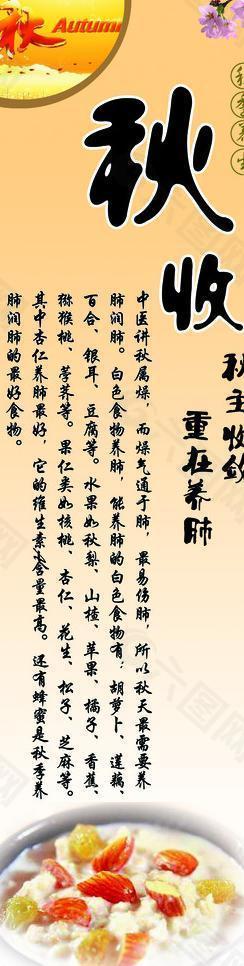 秋
Autumn
秋收
秋主收敛
重在养肺
中医讲秋属燥，而燥气通于肺，最易伤肺，所以秋天最需要养
肺润肺。白色食物养肺，能养肺的白色食物有：胡萝卜、莲藕、
百合、银耳、豆腐等。水果如秋梨、山楂、苹果、橘子、香蕉、
猕猴桃、荸荠等。果仁类如核桃、杏仁、花生、松子、芝麻等。
其中杏仁养肺最好，它的维生素A含量最高。还有蜂蜜是秋季养
肺润肺的最好食物。